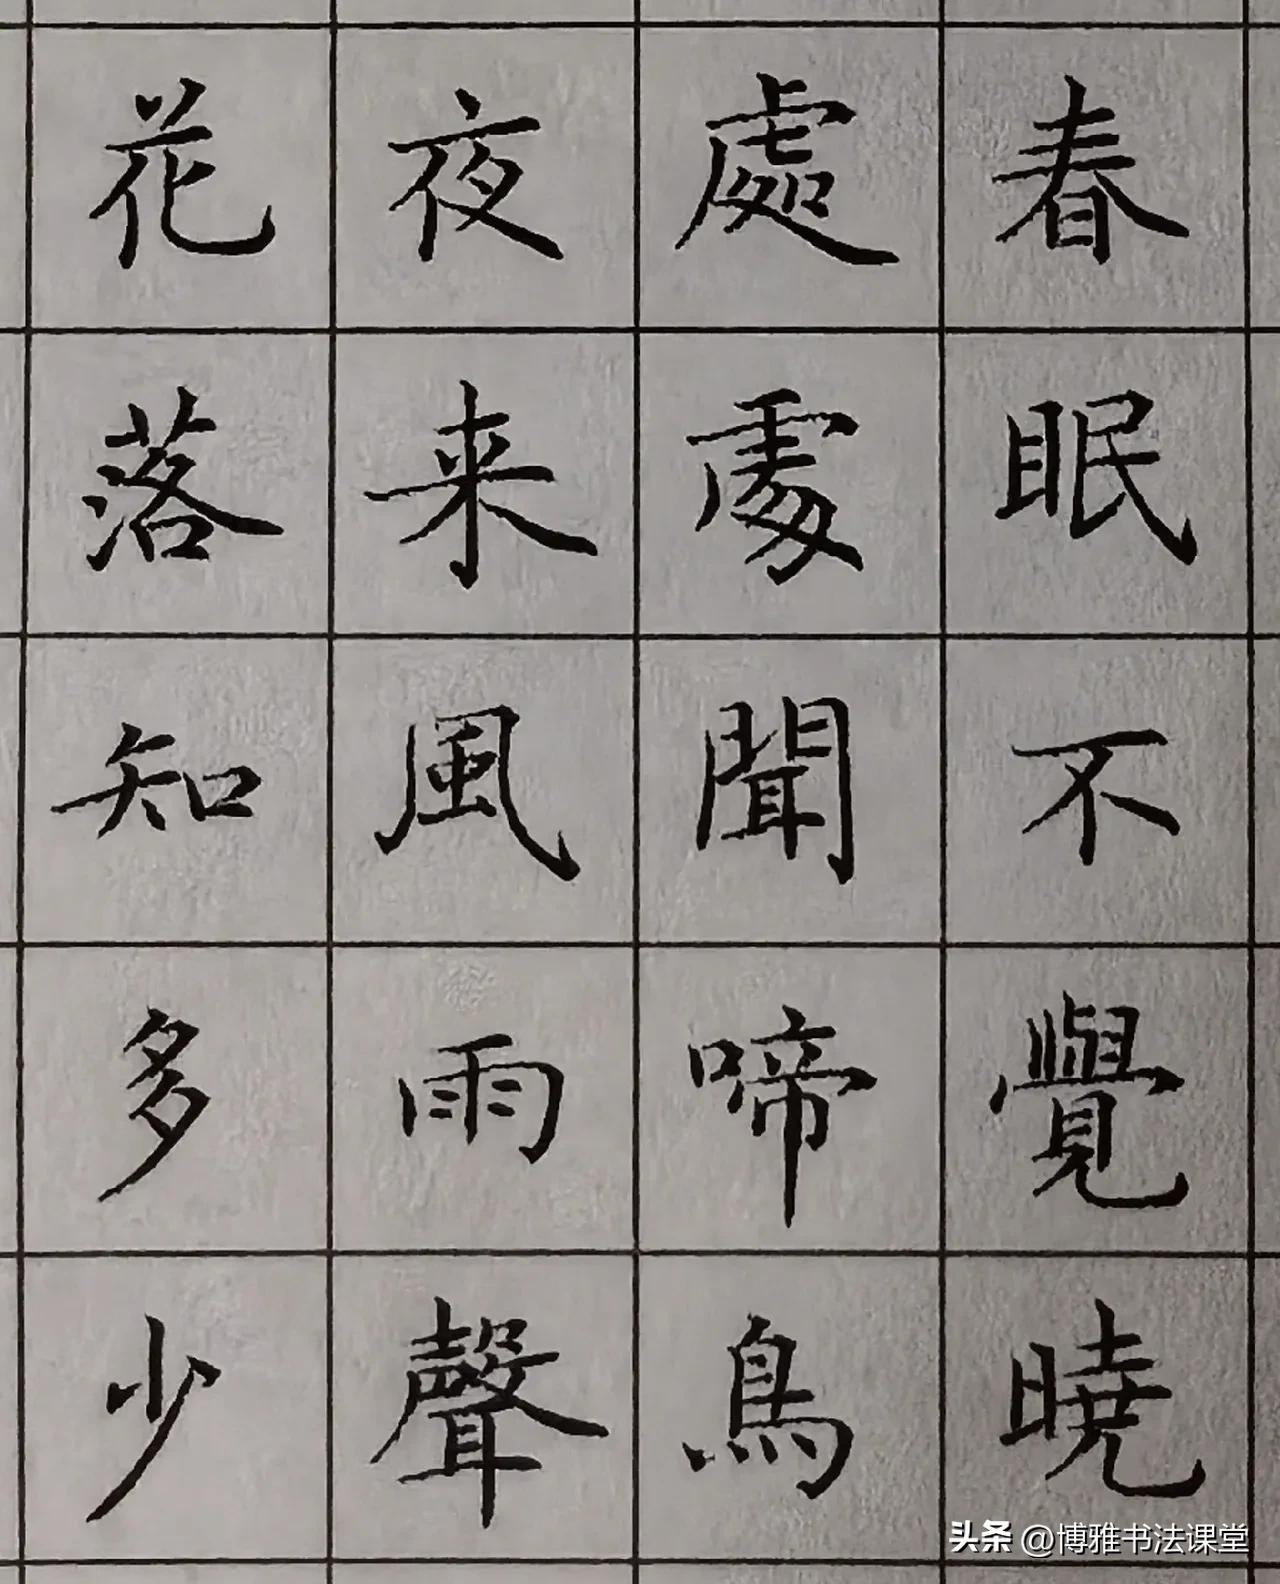 春眠不覺曉
處處聞啼鳥
夜来風雨聲
花落知多少
头条 @博雅书法课堂